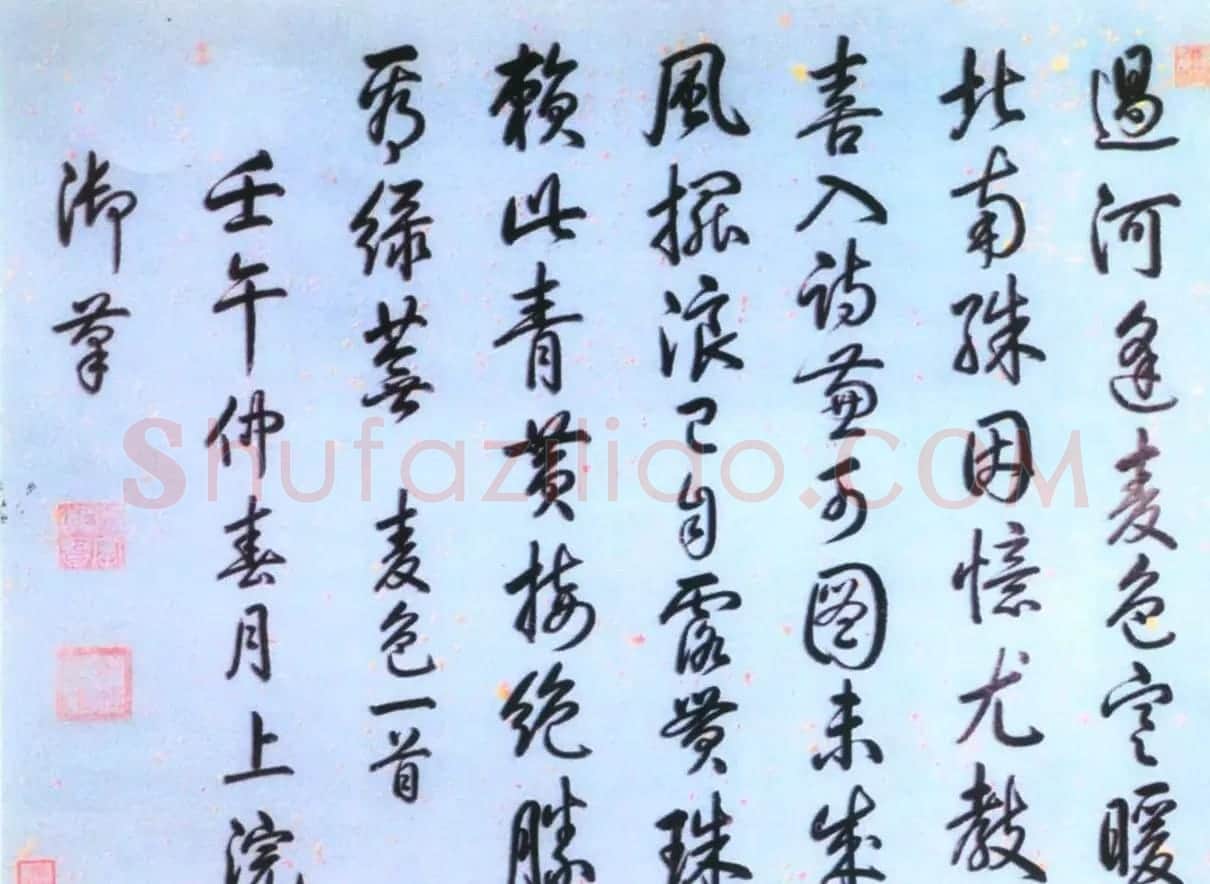 過河逢麦色寒暖
北南殊因憶尤教
喜入詩兼可圖未成
風擺浪已自露貫珠
賴此青黃接絕勝
綠蕪 麦色一首
壬午仲春月上浣
御筆
Shufaziliao.COM